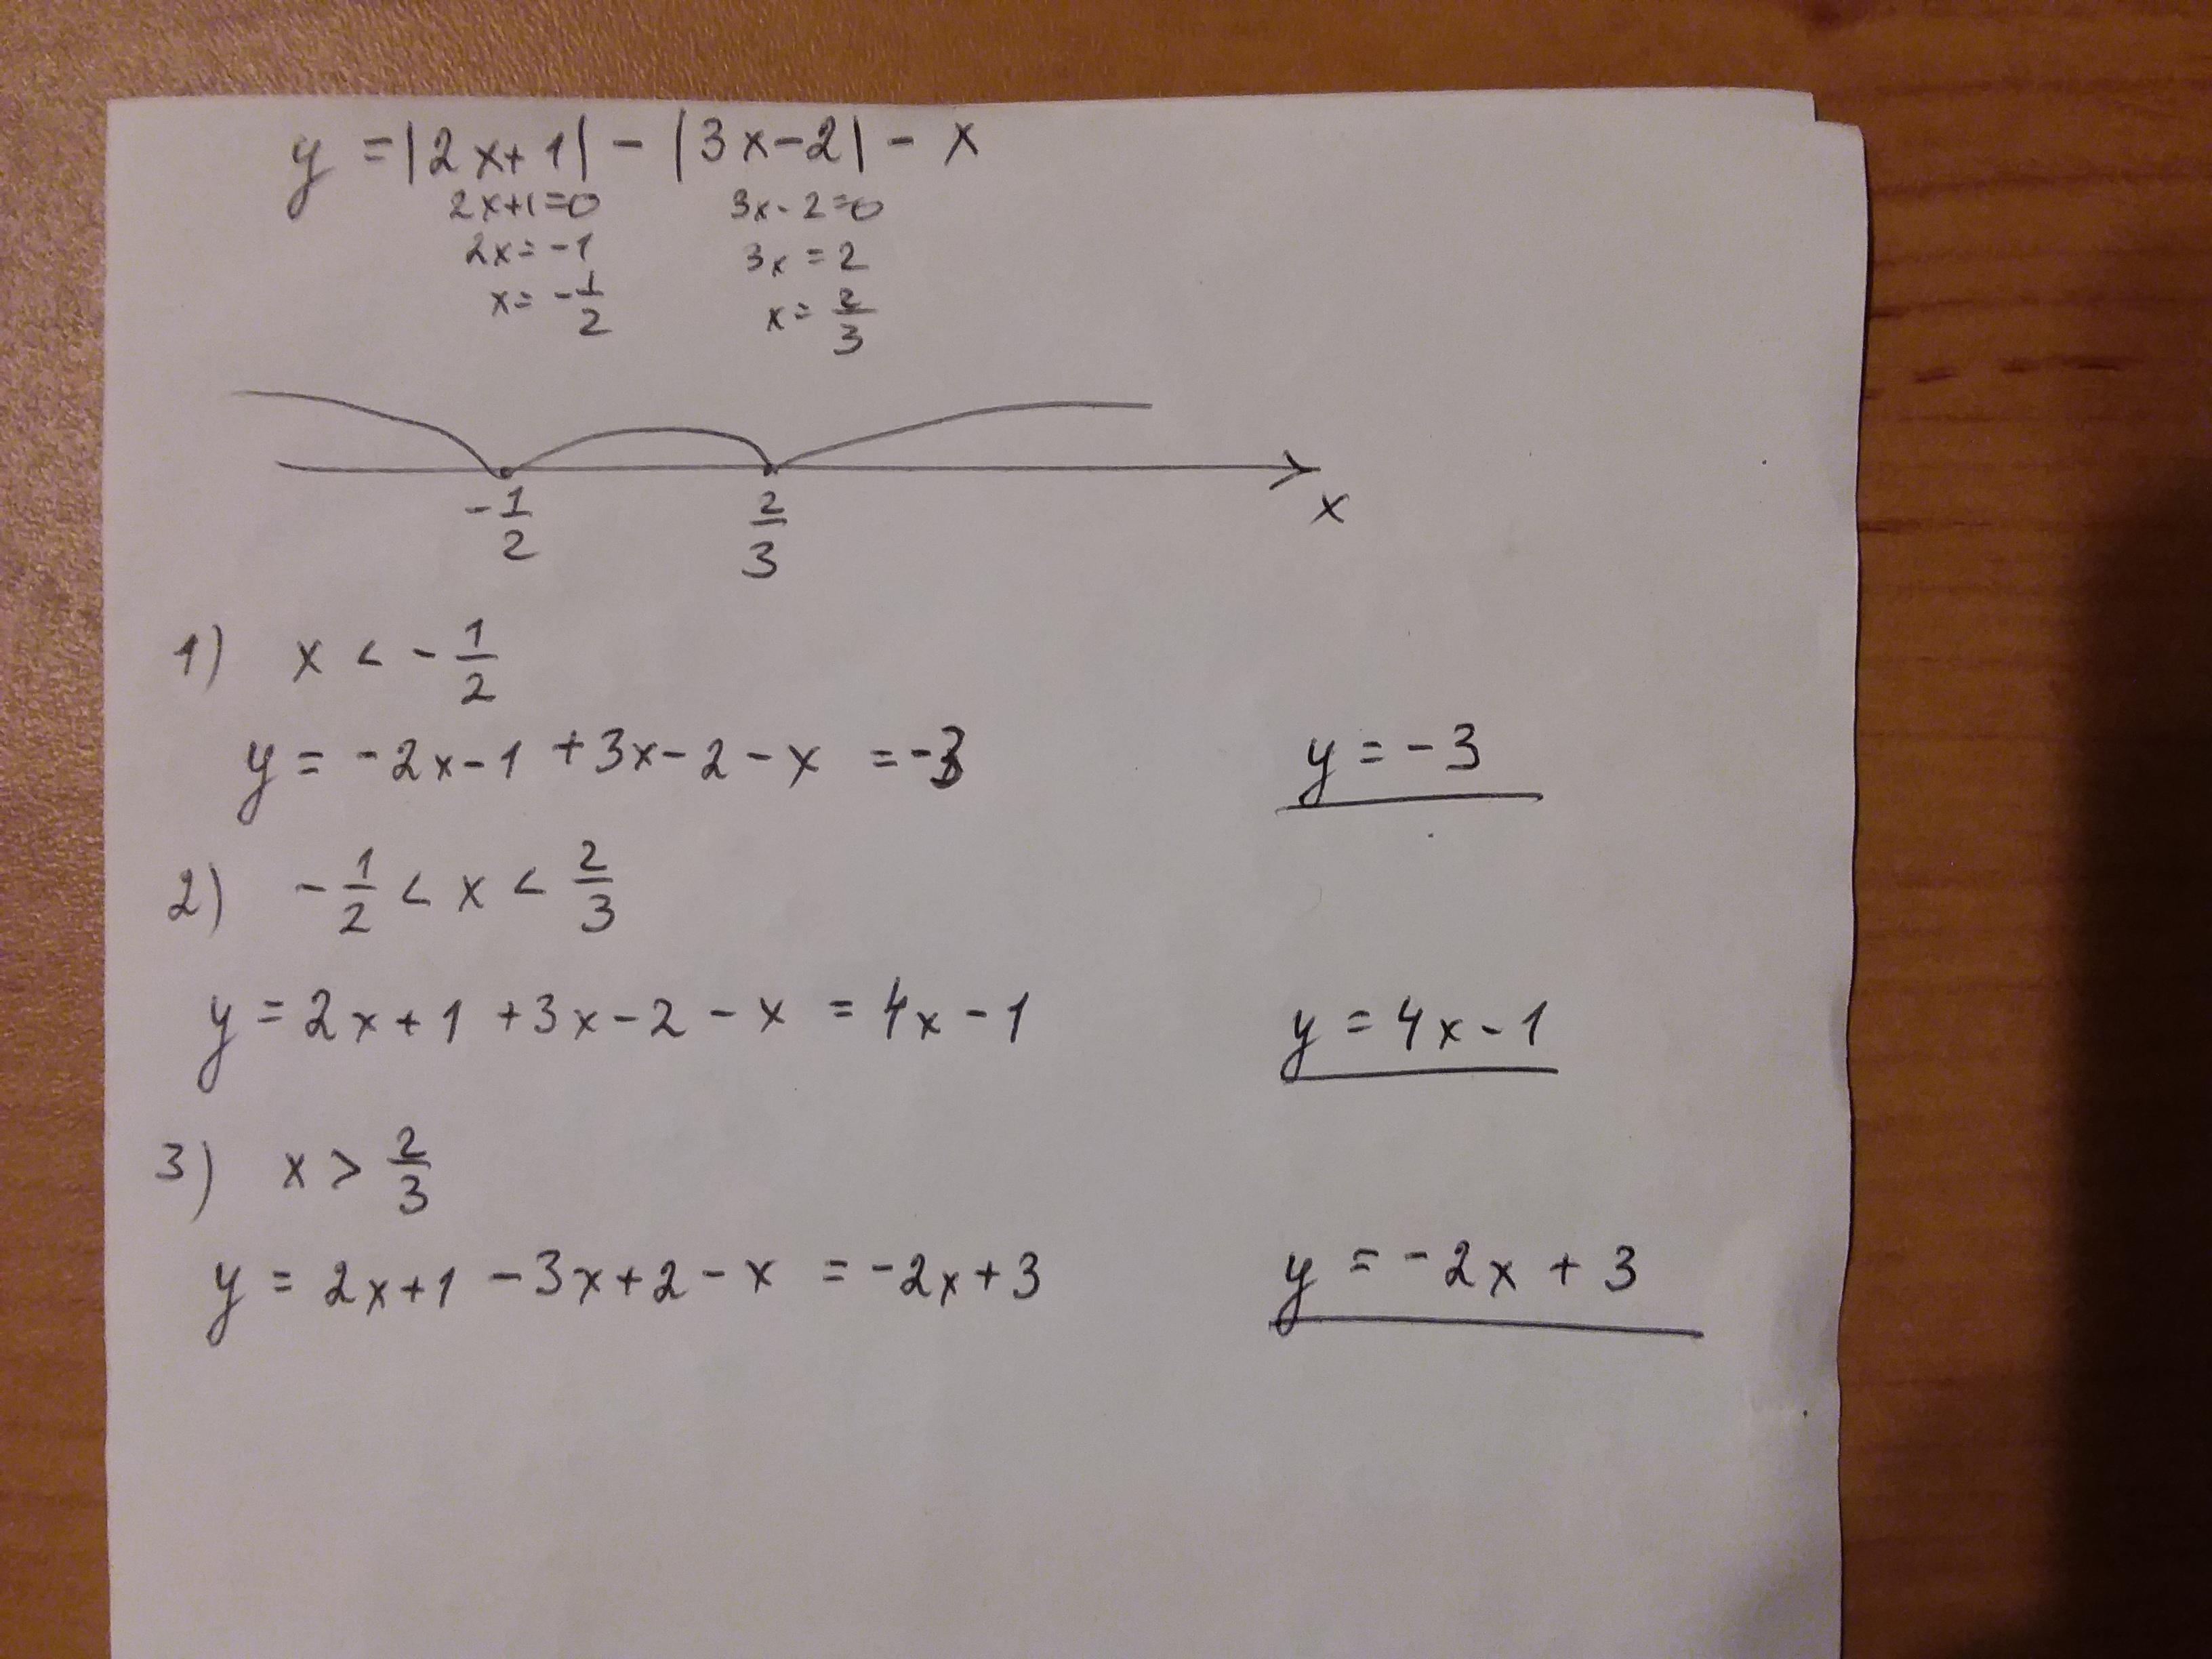 y = |2x+1| - |3x-2| - x
2x+1=0 3x-2=0
2x=-1 3x=2
x=-1/2 x=2/3
-1/2 2/3 x
1) x < -1/2
y = -2x-1 +3x-2-x =-3 y=-3
2) -1/2 < x < 2/3
y = 2x+1 +3x-2-x = 4x-1 y=4x-1
3) x > 2/3
y = 2x+1 -3x+2-x = -2x+3 y=-2x+3